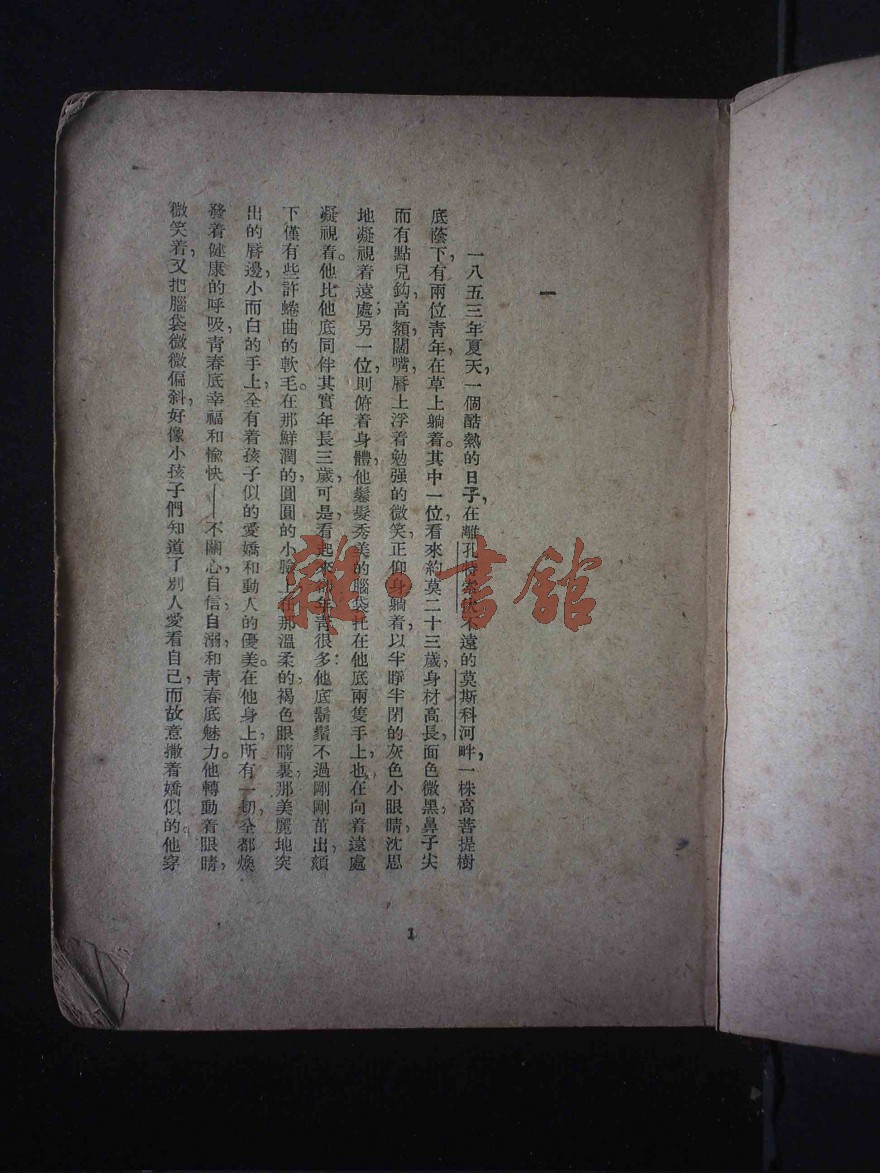 一
一八五三年夏天，一個酷熱的日子，在離孔特索伏不遠的莫斯科河畔，一株高菩提樹
底蔭下，有兩位青年在草上躺着。其中一位，看來約莫二十三歲，身材高長，面色微黑，鼻子尖
而有點兒鈎，高額，闊嘴，唇上浮着勉强的微笑，正仰身躺着，以半睜半閉的灰色小眼睛，沈思
地凝視着遠處；另一位，則俯着身體，他鬈髮秀美的腦袋托在他底兩隻手上，也在向着遠處
凝視着。他比他底同伴其實年長三歲，可是看起來卻年青很多：他底鬍鬚不過剛剛茁出，頦
下僅有些許蜷曲的軟毛。在那鮮潤的，圓圓的小臉上，在那溫柔的，褐色眼睛裏，那美麗地突
出的唇邊，小而白的手上，全有着孩子似的愛嬌和動人的優美。在他身上，所有一切，全都煥
發着健康的呼吸，青春底幸福和愉快——不關心，自信，自溺，和青春底魅力。他轉動着眼睛，
微笑着，又把腦袋微微偏斜，好像小孩子們知道了別人愛看自己，而故意撒着嬌似的。他穿
1
雜·書館